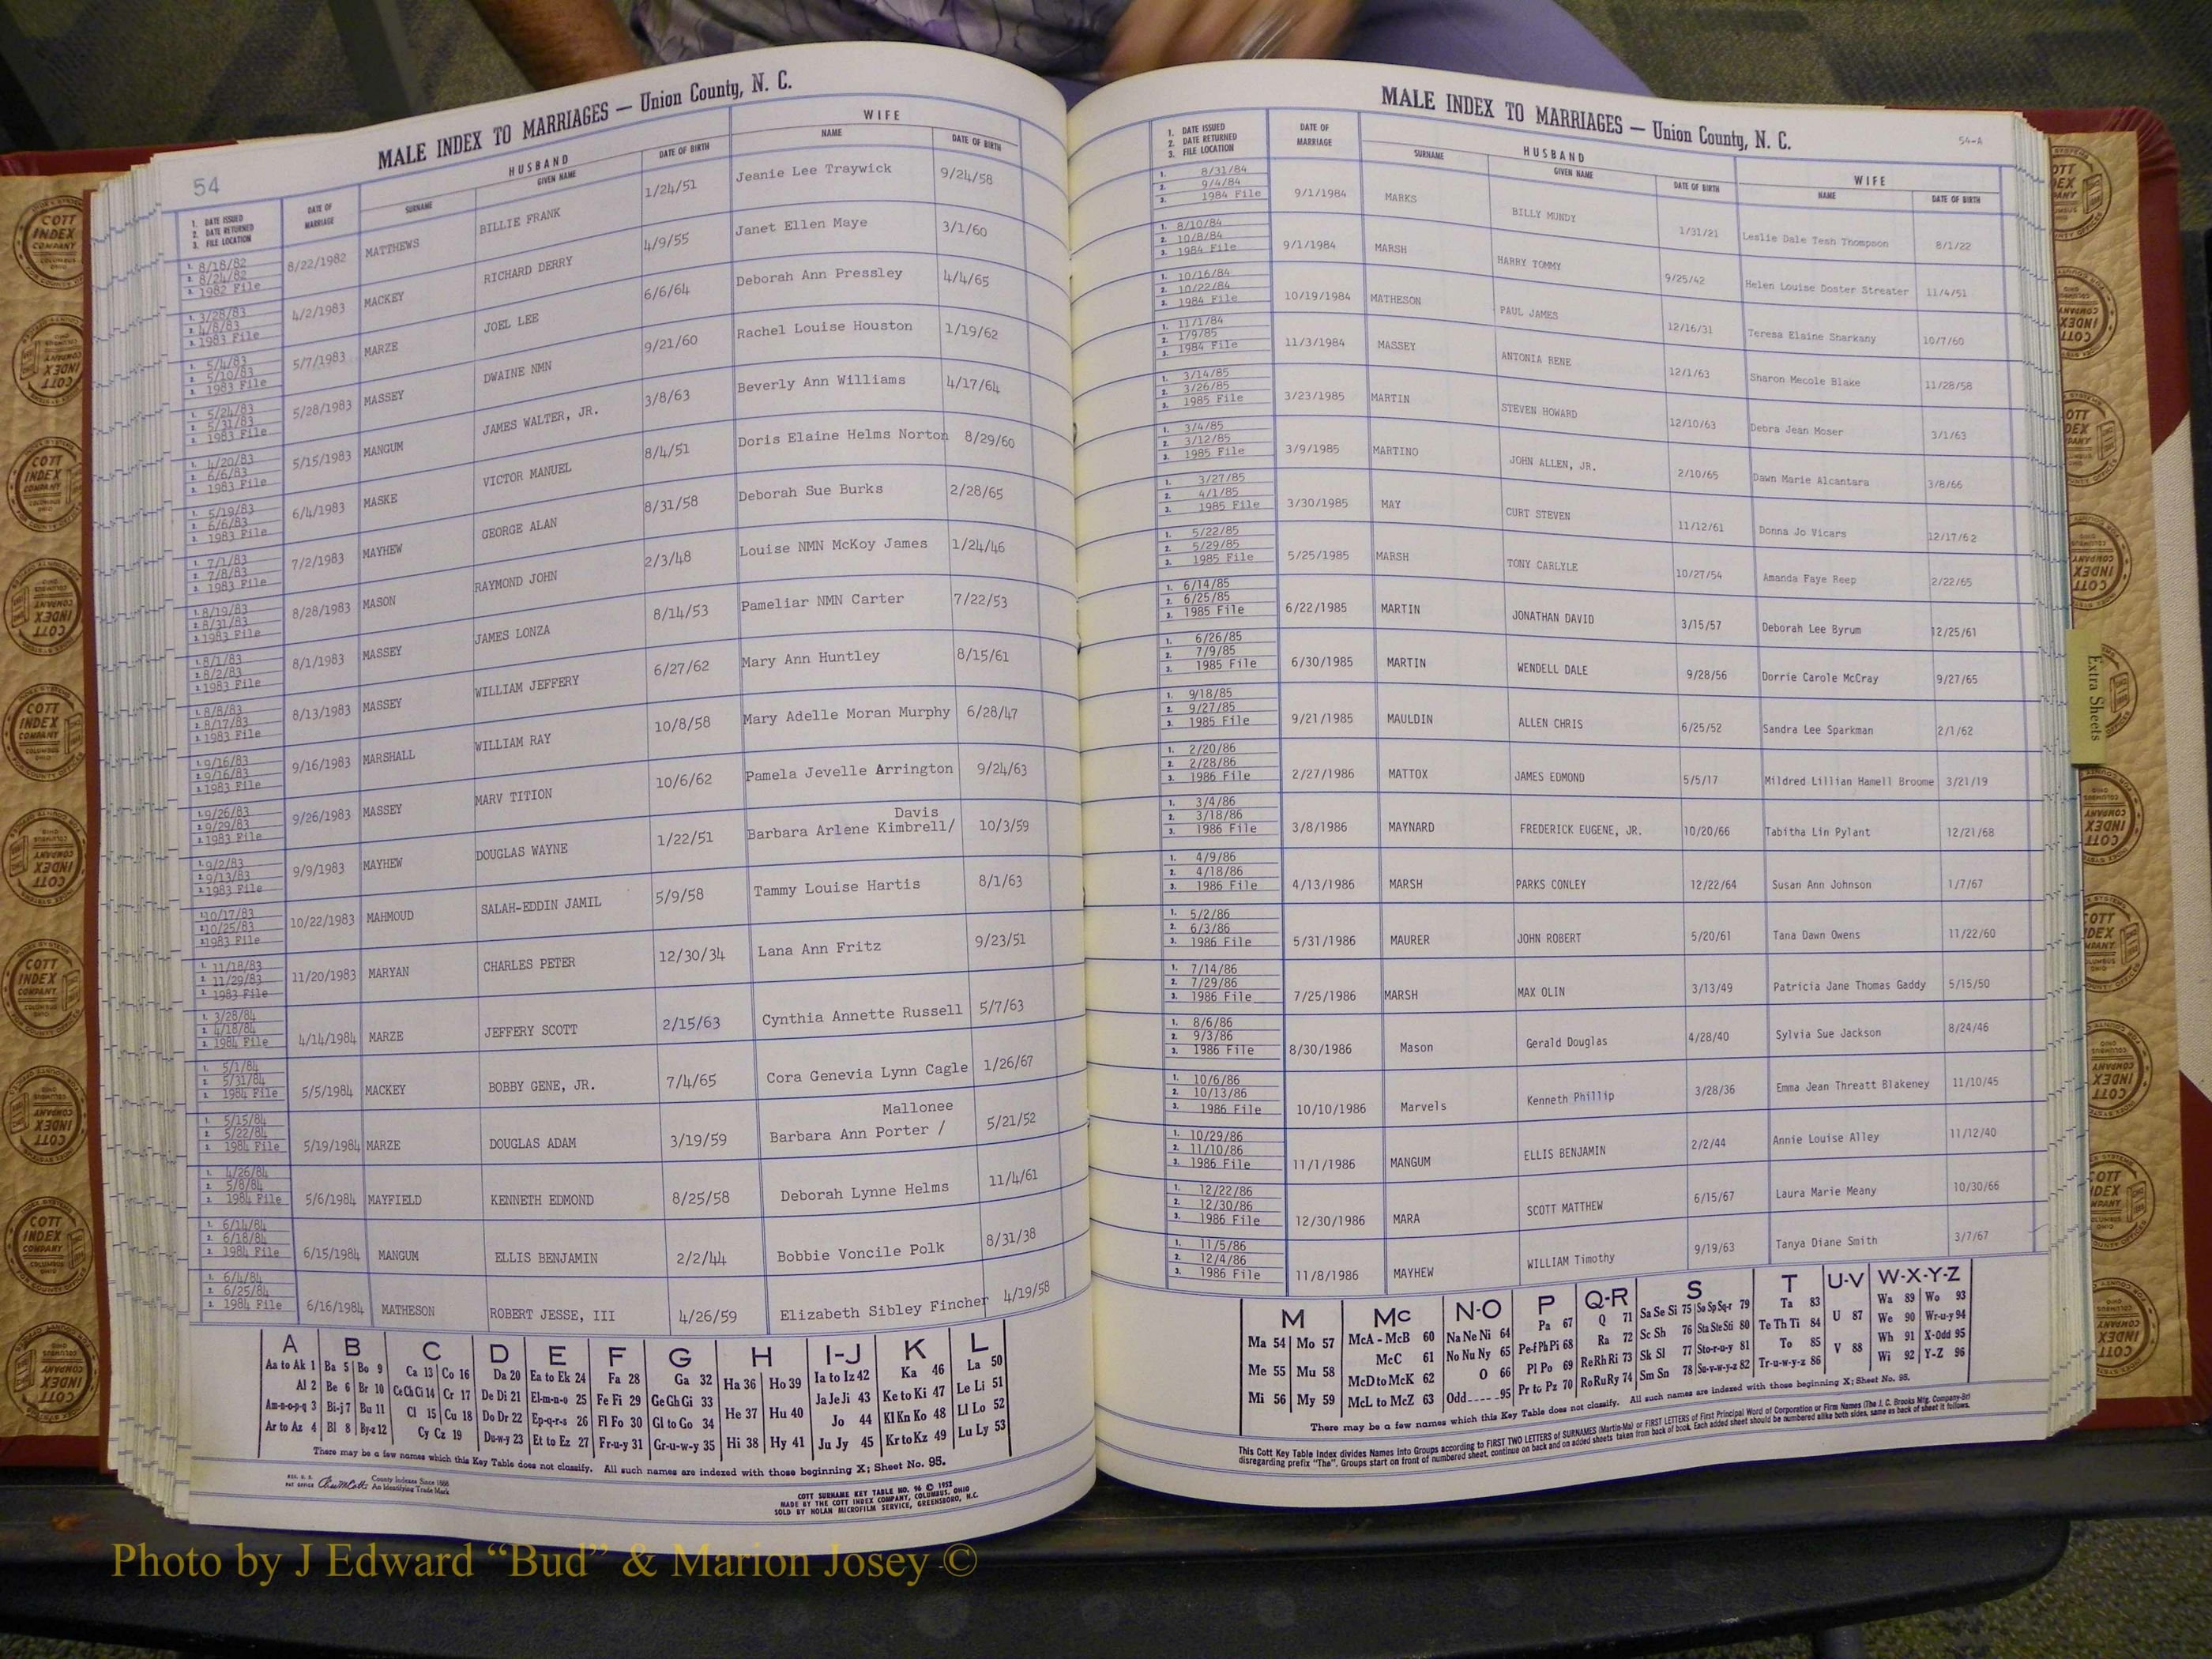 MALE INDEX TO MARRIAGES — Union County, N. C.
54
1. DATE ISSUED
2. DATE RETURNED
3. FILE LOCATION
DATE OF MARRIAGE
HUSBAND
SURNAME
GIVEN NAME
DATE OF BIRTH
WIFE
NAME
DATE OF BIRTH
1. 8/18/82 2. 8/24/82 3. 1982 File 8/22/1982 MATTHEWS BILLIE FRANK 1/24/51 Jeanie Lee Traywick 9/24/58
1. 3/28/83 2. 4/8/83 3. 1983 File 4/2/1983 MACKEY RICHARD DERRY 4/9/55 Janet Ellen Maye 3/1/60
1. 5/4/83 2. 5/10/83 3. 1983 File 5/7/1983 MARZE JOEL LEE 6/6/64 Deborah Ann Pressley 4/4/65
1. 5/24/83 2. 5/31/83 3. 1983 File 5/28/1983 MASSEY DWAINE NMN 9/21/60 Rachel Louise Houston 1/19/62
1. 4/20/83 2. 6/6/83 3. 1983 File 5/15/1983 MANGUM JAMES WALTER, JR. 3/8/63 Beverly Ann Williams 4/17/64
1. 5/19/83 2. 6/6/83 3. 1983 File 6/4/1983 MASKE VICTOR MANUEL 8/4/51 Doris Elaine Helms Norton 8/29/60
1. 7/1/83 2. 7/8/83 3. 1983 File 7/2/1983 MAYHEW GEORGE ALAN 8/31/58 Deborah Sue Burks 2/28/65
1. 8/19/83 2. 8/31/83 3. 1983 File 8/28/1983 MASON RAYMOND JOHN 2/3/48 Louise NMN McKoy James 1/24/46
1. 8/1/83 2. 8/2/83 3. 1983 File 8/1/1983 MASSEY JAMES LONZA 8/14/53 Pameliar NMN Carter 7/22/53
1. 8/8/83 2. 8/17/83 3. 1983 File 8/13/1983 MASSEY WILLIAM JEFFERY 6/27/62 Mary Ann Huntley 8/15/61
1. 9/16/83 2. 9/16/83 3. 1983 File 9/16/1983 MARSHALL WILLIAM RAY 10/8/58 Mary Adelle Moran Murphy 6/28/47
1. 9/26/83 2. 9/29/83 3. 1983 File 9/26/1983 MASSEY MARV TITION 10/6/62 Pamela Jevelle Arrington 9/24/63
1. 9/2/83 2. 9/13/83 3. 1983 File 9/9/1983 MAYHEW DOUGLAS WAYNE 1/22/51 Barbara Arlene Kimbrell/ Davis 10/3/59
1. 10/17/83 2. 10/25/83 3. 1983 File 10/22/1983 MAHMOUD SALAH-EDDIN JAMIL 5/9/58 Tammy Louise Hartis 8/1/63
1. 11/18/83 2. 11/29/83 3. 1983 File 11/20/1983 MARYAN CHARLES PETER 12/30/34 Lana Ann Fritz 9/23/51
1. 3/28/84 2. 4/18/84 3. 1984 File 4/14/1984 MARZE JEFFERY SCOTT 2/15/63 Cynthia Annette Russell 5/7/63
1. 5/1/84 2. 5/31/84 3. 1984 File 5/5/1984 MACKEY BOBBY GENE, JR. 7/4/65 Cora Genevia Lynn Cagle 1/26/67
1. 5/15/84 2. 5/22/84 3. 1984 File 5/19/1984 MARZE DOUGLAS ADAM 3/19/59 Barbara Ann Porter / Mallonee 5/21/52
1. 4/26/84 2. 5/8/84 3. 1984 File 5/6/1984 MAYFIELD KENNETH EDMOND 8/25/58 Deborah Lynne Helms 11/4/61
1. 6/14/84 2. 6/18/84 3. 1984 File 6/15/1984 MANGUM ELLIS BENJAMIN 2/2/44 Bobbie Voncile Polk 8/31/38
1. 6/4/84 2. 6/25/84 3. 1984 File 6/16/1984 MATHESON ROBERT JESSE, III 4/26/59 Elizabeth Sibley Fincher 4/19/58
A B C D E F G H I-J K L
Aa to Ak 1 Ba 5 Bo 9 Ca 13 Co 16 Da 20 Ea to Ek 24 Fa 28 Ga 32 Ha 36 Ho 39 Ia to Iz 42 Ka 46 La 50
Al 2 Be 6 Br 10 Ce Ch Ci 14 Cr 17 De Di 21 El-m-n-o 25 Fe Fi 29 Ge Gh Gi 33 He 37 Hu 40 Ja Je Ji 43 Ke to Ki 47 Le Li 51
Am-n-o-p-q 3 Bi-j 7 Bu 11 Cl 15 Cu 18 Do Dr 22 Ep-q-r-s 26 Fl Fo 30 Gl to Go 34 Hi 38 Hy 41 Jo 44 Kl Kn Ko 48 Ll Lo 52
Ar to Az 4 Bl 8 By-z 12 Cy Cz 19 Du-w-y 23 Et to Ez 27 Fr-u-y 31 Gr-u-w-y 35 Ju Jy 45 Kr to Kz 49 Lu Ly 53
There may be a few names which this Key Table does not classify. All such names are indexed with those beginning X; Sheet No. 95.
County Indexes Since 1888
An Identifying Trade Mark
COTT SURNAME KEY TABLE NO. 96 © 1952
MADE BY THE COTT INDEX COMPANY, COLUMBUS, OHIO
SOLD BY NOLAN MICROFILM SERVICE, GREENSBORO, N.C.
MALE INDEX TO MARRIAGES — Union County, N. C.
54-A
1. DATE ISSUED
2. DATE RETURNED
3. FILE LOCATION
DATE OF MARRIAGE
HUSBAND
SURNAME
GIVEN NAME
DATE OF BIRTH
WIFE
NAME
DATE OF BIRTH
1. 8/31/84 2. 9/4/84 3. 1984 File 9/1/1984 MARKS BILLY MUNDY 1/31/21 Leslie Dale Tesh Thompson 8/1/22
1. 8/10/84 2. 10/8/84 3. 1984 File 9/1/1984 MARSH HARRY TOMMY 9/25/42 Helen Louise Doster Streater 11/4/51
1. 10/16/84 2. 10/22/84 3. 1984 File 10/19/1984 MATHESON PAUL JAMES 12/16/31 Teresa Elaine Sharkany 10/7/60
1. 11/1/84 2. 1/9/85 3. 1984 File 11/3/1984 MASSEY ANTONIA RENE 12/1/63 Sharon Mecole Blake 11/28/58
1. 3/14/85 2. 3/26/85 3. 1985 File 3/23/1985 MARTIN STEVEN HOWARD 12/10/63 Debra Jean Moser 3/1/63
1. 3/4/85 2. 3/12/85 3. 1985 File 3/9/1985 MARTINO JOHN ALLEN, JR. 2/10/65 Dawn Marie Alcantara 3/8/66
1. 3/27/85 2. 4/1/85 3. 1985 File 3/30/1985 MAY CURT STEVEN 11/12/61 Donna Jo Vicars 12/17/62
1. 5/22/85 2. 5/29/85 3. 1985 File 5/25/1985 MARSH TONY CARLYLE 10/27/54 Amanda Faye Reep 2/22/65
1. 6/14/85 2. 6/25/85 3. 1985 File 6/22/1985 MARTIN JONATHAN DAVID 3/15/57 Deborah Lee Byrum 12/25/61
1. 6/26/85 2. 7/9/85 3. 1985 File 6/30/1985 MARTIN WENDELL DALE 9/28/56 Dorrie Carole McCray 9/27/65
1. 9/18/85 2. 9/27/85 3. 1985 File 9/21/1985 MAULDIN ALLEN CHRIS 6/25/52 Sandra Lee Sparkman 2/1/62
1. 2/20/86 2. 2/28/86 3. 1986 File 2/27/1986 MATTOX JAMES EDMOND 5/5/17 Mildred Lillian Hamell Broome 3/21/19
1. 3/4/86 2. 3/18/86 3. 1986 File 3/8/1986 MAYNARD FREDERICK EUGENE, JR. 10/20/66 Tabitha Lin Pylant 12/21/68
1. 4/9/86 2. 4/18/86 3. 1986 File 4/13/1986 MARSH PARKS CONLEY 12/22/64 Susan Ann Johnson 1/7/67
1. 5/2/86 2. 6/3/86 3. 1986 File 5/31/1986 MAURER JOHN ROBERT 5/20/61 Tana Dawn Owens 11/22/60
1. 7/14/86 2. 7/29/86 3. 1986 File 7/25/1986 MARSH MAX OLIN 3/13/49 Patricia Jane Thomas Gaddy 5/15/50
1. 8/6/86 2. 9/3/86 3. 1986 File 8/30/1986 Mason Gerald Douglas 4/28/40 Sylvia Sue Jackson 8/24/46
1. 10/6/86 2. 10/13/86 3. 1986 File 10/10/1986 Marvels Kenneth Phillip 3/28/36 Emma Jean Threatt Blakeney 11/10/45
1. 10/29/86 2. 11/10/86 3. 1986 File 11/1/1986 MANGUM ELLIS BENJAMIN 2/2/44 Annie Louise Alley 11/12/40
1. 12/22/86 2. 12/30/86 3. 1986 File 12/30/1986 MARA SCOTT MATTHEW 6/15/67 Laura Marie Meany 10/30/66
1. 11/5/86 2. 12/4/86 3. 1986 File 11/8/1986 MAYHEW WILLIAM Timothy 9/19/63 Tanya Diane Smith 3/7/67
M Mc N-O P Q-R S T U-V W-X-Y-Z
Ma 54 Mo 57 McA - McB 60 Na Ne Ni 64 Pa 67 Q 71 Sa Se Si 75 So Sp Sq-r 79 Ta 83 U 87 Wa 89 Wo 93
Me 55 Mu 58 McC 61 No Nu Ny 65 Pe-f Ph Pi 68 Ra 72 Sc Sh 76 Sta Ste Sti 80 Te Th Ti 84 V 88 We 90 Wr-u-y 94
Mi 56 My 59 McD to McK 62 O 66 Pl Po 69 Re Rh Ri 73 Sk Sl 77 Sto-r-u-y 81 To 85 Wh 91 X-Odd 95
McL to McZ 63 Odd 95 Pr to Pz 70 Ro Ru Ry 74 Sm Sn 78 Su-v-w-y-z 82 Tr-u-w-y-z 86 Wi 92 Y-Z 96
There may be a few names which this Key Table does not classify. All such names are indexed with those beginning X; Sheet No. 95.
This Cott Key Table Index divides Names into Groups according to FIRST TWO LETTERS of SURNAMES (Martin-Ma) or FIRST LETTERS of First Principal Word of Corporation or Firm Names (The J. C. Brooks Mfg. Company-Br)
disregarding prefix "The". Groups start on front of numbered sheet, continue on back and on added sheets taken from back of book. Each added sheet should be numbered alike both sides, same as back of sheet it follows.
Extra Sheets
COTT INDEX COMPANY COLUMBUS OHIO
Photo by J Edward “Bud” & Marion Josey ©